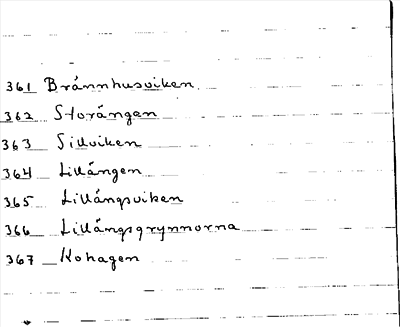 361 Brännhusviken
362 Storängen
363 Sillviken
364 Lillängen
365 Lillängsviken
366 Lillängsgrynnorna
367 Kohagen